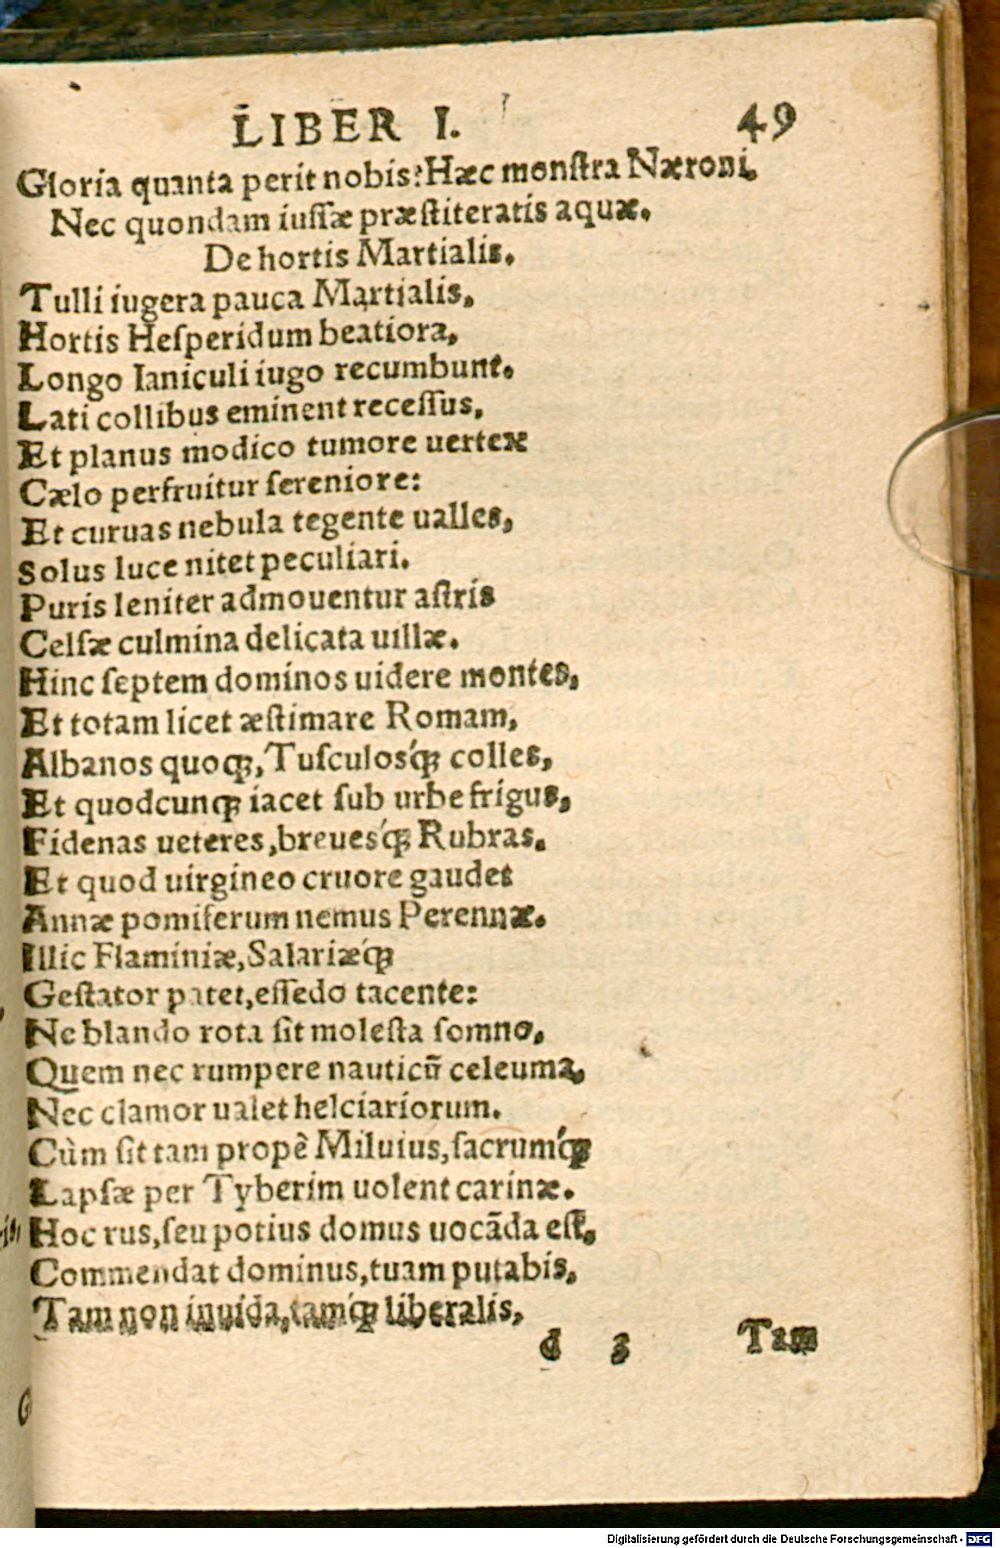 LIBER I. 49
Gloria quanta perit nobis! Hæc monſtra Næroni,
Nec quondam iuſſæ præſtiteratis aquæ.
De hortis Martialis.
Tulli iugera pauca Martialis,
Hortis Heſperidum beatiora,
Longo Ianiculi iugo recumbunt.
Lati collibus eminent receſſus,
Et planus modico tumore uertex
Cælo perfruitur ſereniore:
Et curuas nebula tegente ualles,
Solus luce nitet peculiari.
Puris leniter admouentur aſtris
Celſæ culmina delicata uillæ.
Hinc ſeptem dominos uidere montes,
Et totam licet æſtimare Romam,
Albanos quoqꝫ, Tuſculosq́ꝫ colles,
Et quodcunqꝫ iacet ſub urbe frigus,
Fidenas ueteres, breuesq́ꝫ Rubras.
Et quod uirgineo cruore gaudet
Annæ pomiferum nemus Perennæ.
Illic Flaminiæ, Salariæq́ꝫ
Geſtator patet, eſſedo tacente:
Ne blando rota ſit moleſta ſomno,
Quem nec rumpere nauticũ celeuma,
Nec clamor ualet helciariorum.
Cùm ſit tam propè Miluius, ſacrumq́ꝫ
Lapſæ per Tyberim uolent carinæ.
Hoc rus, ſeu potius domus uocãda eſt,
Commendat dominus, tuam putabis,
Tam non inuida, tamq́ꝫ liberalis,
d 3 Tam
Digitalisierung gefördert durch die Deutsche Forschungsgemeinschaft - DFG